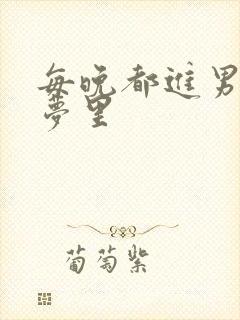 每晚都进男
梦里
葡萄紫